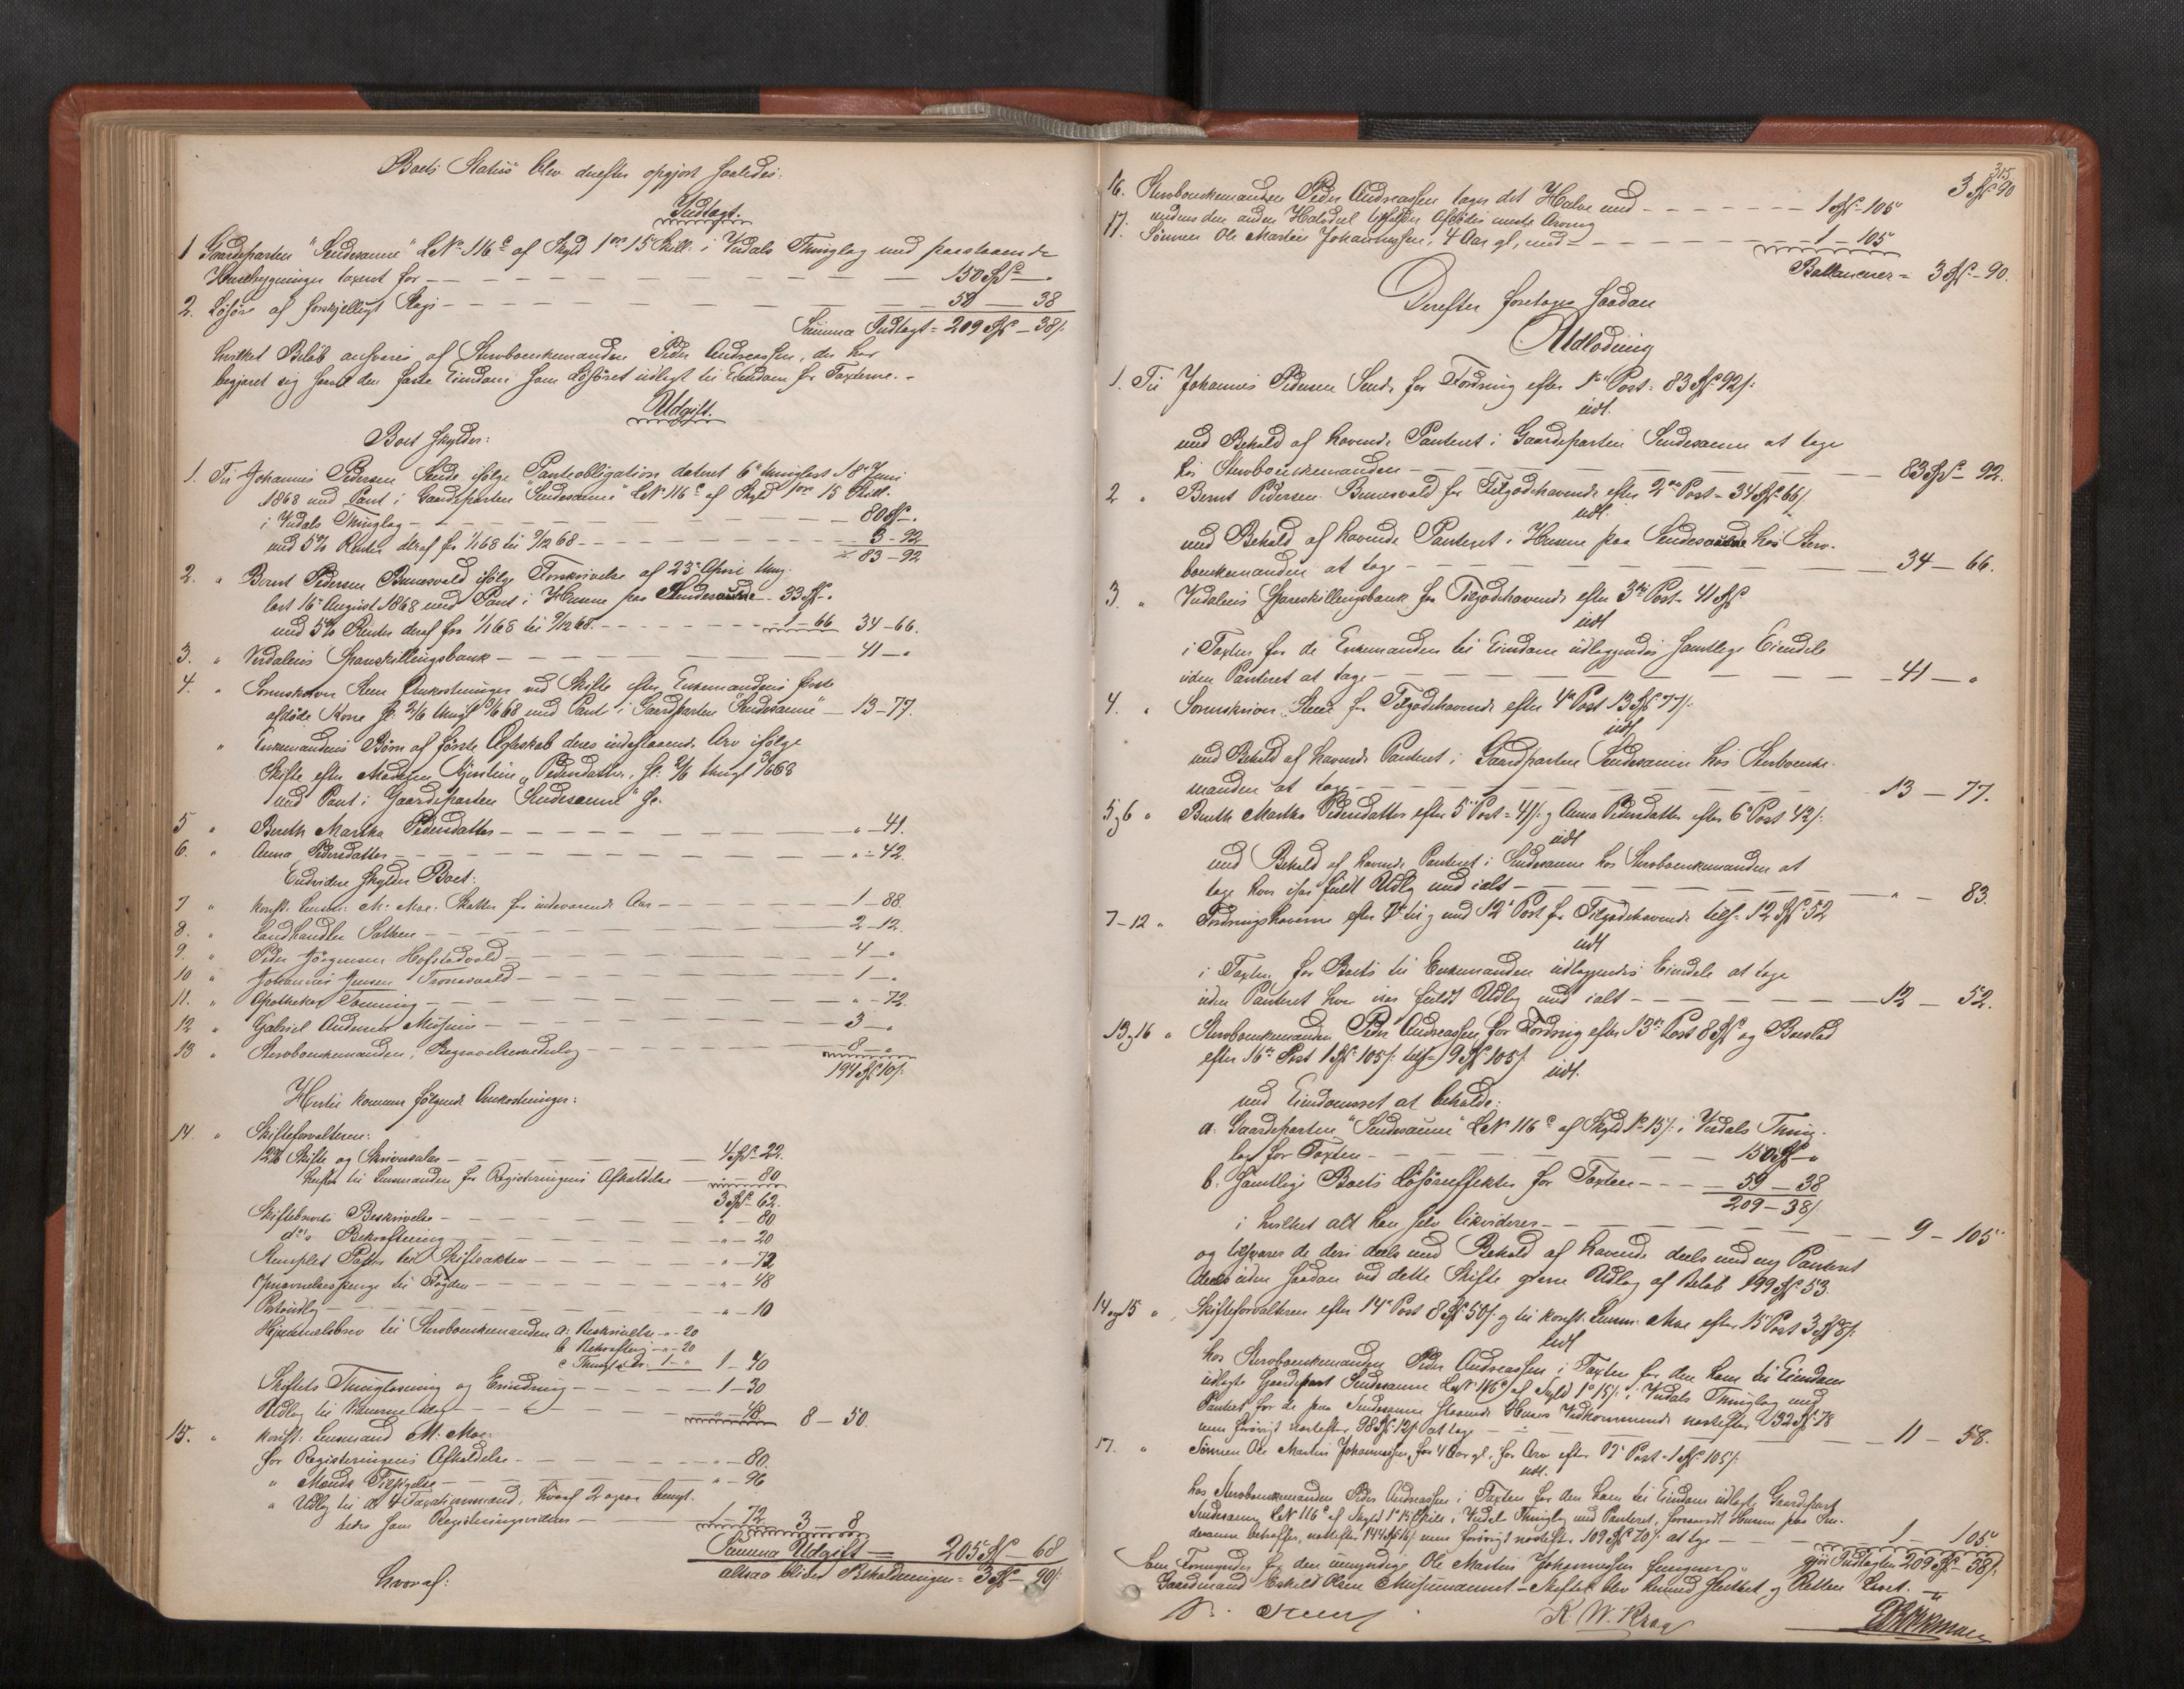 Boets Status blev derefter opgjort saaledes:
Indtægt.
1 Gaardeparten "Sendesaune" LNo 116c af Skyld 1ort 15 Skill. i Verdals Thinglag med paastaaende
Husebygninger taxeret for - 150 Spd - "
2. Løsøre af forskjelligt Slags - 59 - 38
Summa Indtægt = 209 Spd - 38 s.
hvilket Beløb ansvares af Stervboenkemanden Peder Andreassen, der har
begjæret sig saavel den faste Eiendom som Løsøret udlagt til Eiendom for Taxterne. -
Udgift.
Boet skylder:
1. Til Johannes Pedersen Sende ifølge Panteobligation dateret 6te thinglæst 18de Juni
1868 med Pant i Gaardeparten "Sendesaune" LNo 116c af Skyld 1ort 15 Skill.
i Verdals Thinglag - 80 Spd - "
med 5% Renter deraf fra 1/1 68 til 9/12 68 - 3 - 92
83 - 92
2. " Bernt Pedersen Bunesvald ifølge Forskrivelse af 23de April thing-
læst 16de August 1868 med Pant i Husene paa Sendesaune - 33 Spd - "
med 5% Renter deraf fra 1/1 68 til 9/12 68. - 1 - 66 34 - 66.
3. " Verdalens Spareskillingsbank - 41 - "
4. " Sorenskriver Steen Omkostninger ved Skifte efter Enkemandens første
afdøde Kone Sl. 2/6 thingl 18/6 68 med Pant i Gaardparten "Sendesaune" - 13 - 77.
" Enkemandens Børn af første Ægteskab deres indestaaende Arv ifølge
Skifte efter Moderen Pedersdatter, sl. 2/6 thingl 1868
med Pant i Gaardeparten "Sendesaune" Sr.
5 " Bereth Martha Pedersdatter - " - 41.
6. " Anna Pedersdatter - " - 42.
Endvidere skylder Boet:
7 " konst. Lensm: M: Moe. Skatter for indeværende Aar - 1 - 88.
8. " Landhandler Sathen - 2 - 12.
9. " Peder Jørgensen Hofstadvald - 4 - "
10 " Johannes Jensen Tronesvald - 1 - "
11. " Apotheker Tønning - " - 72.
12 " Gabriel Andersen Musum - 3 - "
13 " Stervboenkemanden, Begravelsesvederlag - 8 - "
194 Spd 10 s.
Hertil kommer følgende Omkostninger:
14. " Skifteforvalteren:
12% Skifte og Skriversalær - 4 Spd - 22.
herfra til Lensmanden for Registeringens Afholdelse - " - 80
3 Spd - 62.
Skiftebrevets Beskrivelse - " - 80
do " Bekræftning - " - 20
Stemplet Papir til Skifteakten - " - 72
Opnævnelsespenge til Fogden - " - 48
Portoudlæg - " - 10
Hjemmelsbrev til Stervboenkemanden a: Beskrivelse - " - 20
b Bekræftning - " - 20
c Thingl. &c: 1 - " 1 - 40
Skiftets Thinglæsning og Erindring - 1 - 30
Udlæg til Vidnerne idag - " - 48 8 - 50
15. " konst: Lensmand M: Moe:
For Registeringens Afholdelse - " - 80.
" Mænds Tilsigelse - " - 96
" Udlæg til de 4 Taxationsmænd, hvoraf 2 ogsaa benyt-
tedes som Registeringsvidner - 1 - 72 3 - 8
Summa Udgift = 205 Spd - 68
altsaa bliver Beholdningen = 3 Spd - 90 s.
hvoraf:
315
3 Spd - 90
16. Stervboenkemanden Peder Andreassen tager det Halve med - 1 Spd - 105
medens den anden Halvdeel tilfalder Afdødes eneste Arving
17: Sønnen Ole Martin Johannessen, 4 Aar gl, med - 1 - 105
Ballancerer = 3 Spd - 90.
Derefter foretoges saadan
Udlodning
1. Til Johannes Pedersen Sende for Fordring efter 1ste Post = 83 Spd 92 s:
udl.
med Behold af havende Panteret i Gaardeparten Sendesaune at tage
hos Stervboenkemanden - 83 Spd - 92.
2 " Bernt Pedersen Bunesvald for Tilgodehavende efter 2den Post = 34 Spd 66 s
udl.
med Behold af havende Panteret i Husene paa Sendesaune hos Sterv-
boenkemanden at tage - 34 - 66.
3. " Verdalens Sparskillingsbank for Tilgodehavende efter 3die Post = 41 Spd
udl
i Taxten for de Enkemanden til Eiendom udlæggendes samtlige Eiendele
uden Panteret at tage - 41 - "
4. " Sorenskriver Steen for Tilgodehavende efter 4de Post 13 Spd 77 s.
udl
med Behold af havende Panteret i Gaardparten Sendesaune hos Stervboenke-
manden at tage - 13 - 77.
5 og 6 " Bereth Martha Pedersdatter efter 5te Post = 41 s: og Anna Pedersdatter efter 6te Post 42 s:
udl
med Behold af havende Panteret i Sendesaune hos Stervboenkemanden at
tage hver især fuldt Udlæg med ialt - " - 83.
7-12 " Fordringshaverne efter 7de til og med 12te Post for Tilgodehavende tils. 12 Spd 52
udl
i Taxten for Boets til Enkemanden udlæggendes Eiendele at tage
uden Panteret hver især fuldt Udlæg med ialt - 12 - 52.
13 og 16 " Stervboenkemanden Peder Andreassen for Fordring efter 13de Post 8 Spd og Boeslod
efter 16de Post 1 Spd 105 s: tils = 9 Spd 105 s
udl.
med Eiendomsret at beholde:
a. Gaardeparten "Sendesaune" LNo 116c af Skyld 1ort 15 s: i Verdals Thing-
lag for Taxten - 150 Spd - "
b. Samtlige Boets Løsøreeffekter for Taxten - 59 - 38
209 - 38 s
i hvilket alt han selv likviderer - 9 - 105
og tilsvarer de deri deels med Behold af havende deels med ny Panteret
deels uden saadan ved dette Skifte givne Udlæg af Beløb 199 Spd 53.
14 og 15 " Skifteforvalteren efter 14de Post 8 Spd 50 s: og til konst. Lensm. Moe efter 15de Post 3 Spd 8 s:
udl
hos Stervboenkemanden Peder Andreassen i Taxten for den ham til Eiendom
udlagte Gaardepart Sendesaune LNo 116c af Skyld 1ort 15 s: i Verdals Thinglag med
Panteret for de paa Sendesaune staaende Huses Vedkommende næstefter 132 Spd 78
men forøvrigt næstefter 98 Spd 12 s: at tage - 11 - 58.
17. " Sønnen Ole Martin Johannessen, før 4 Aar gl, for Arv efter 17de Post = 1 Spd 105 s:
udl.
hos Stervboenkemanden Peder Andreassen i Taxten for den ham til Eiendom udlagte Gaardepart
Sendesaune LNo 116c af Skyld 1ort 15 Skill. i Verdals Thinglag med Panteret, forsaavidt Husene paa Sen-
desaune betræffer, næstefter 144 Spd 16 s men forøvrigt næstefter 109 Spd 70 s. at tage - 1 - 105
gjør Indtægten 209 Spd - 38 s.
Som Formynder for den umyndige Ole Martin Johannessen fungerer
Gaardmand Eskild Olsen Musumaunet - Skiftet blev hermed sluttet og Retten hævet.
Steen
K. W. Krag